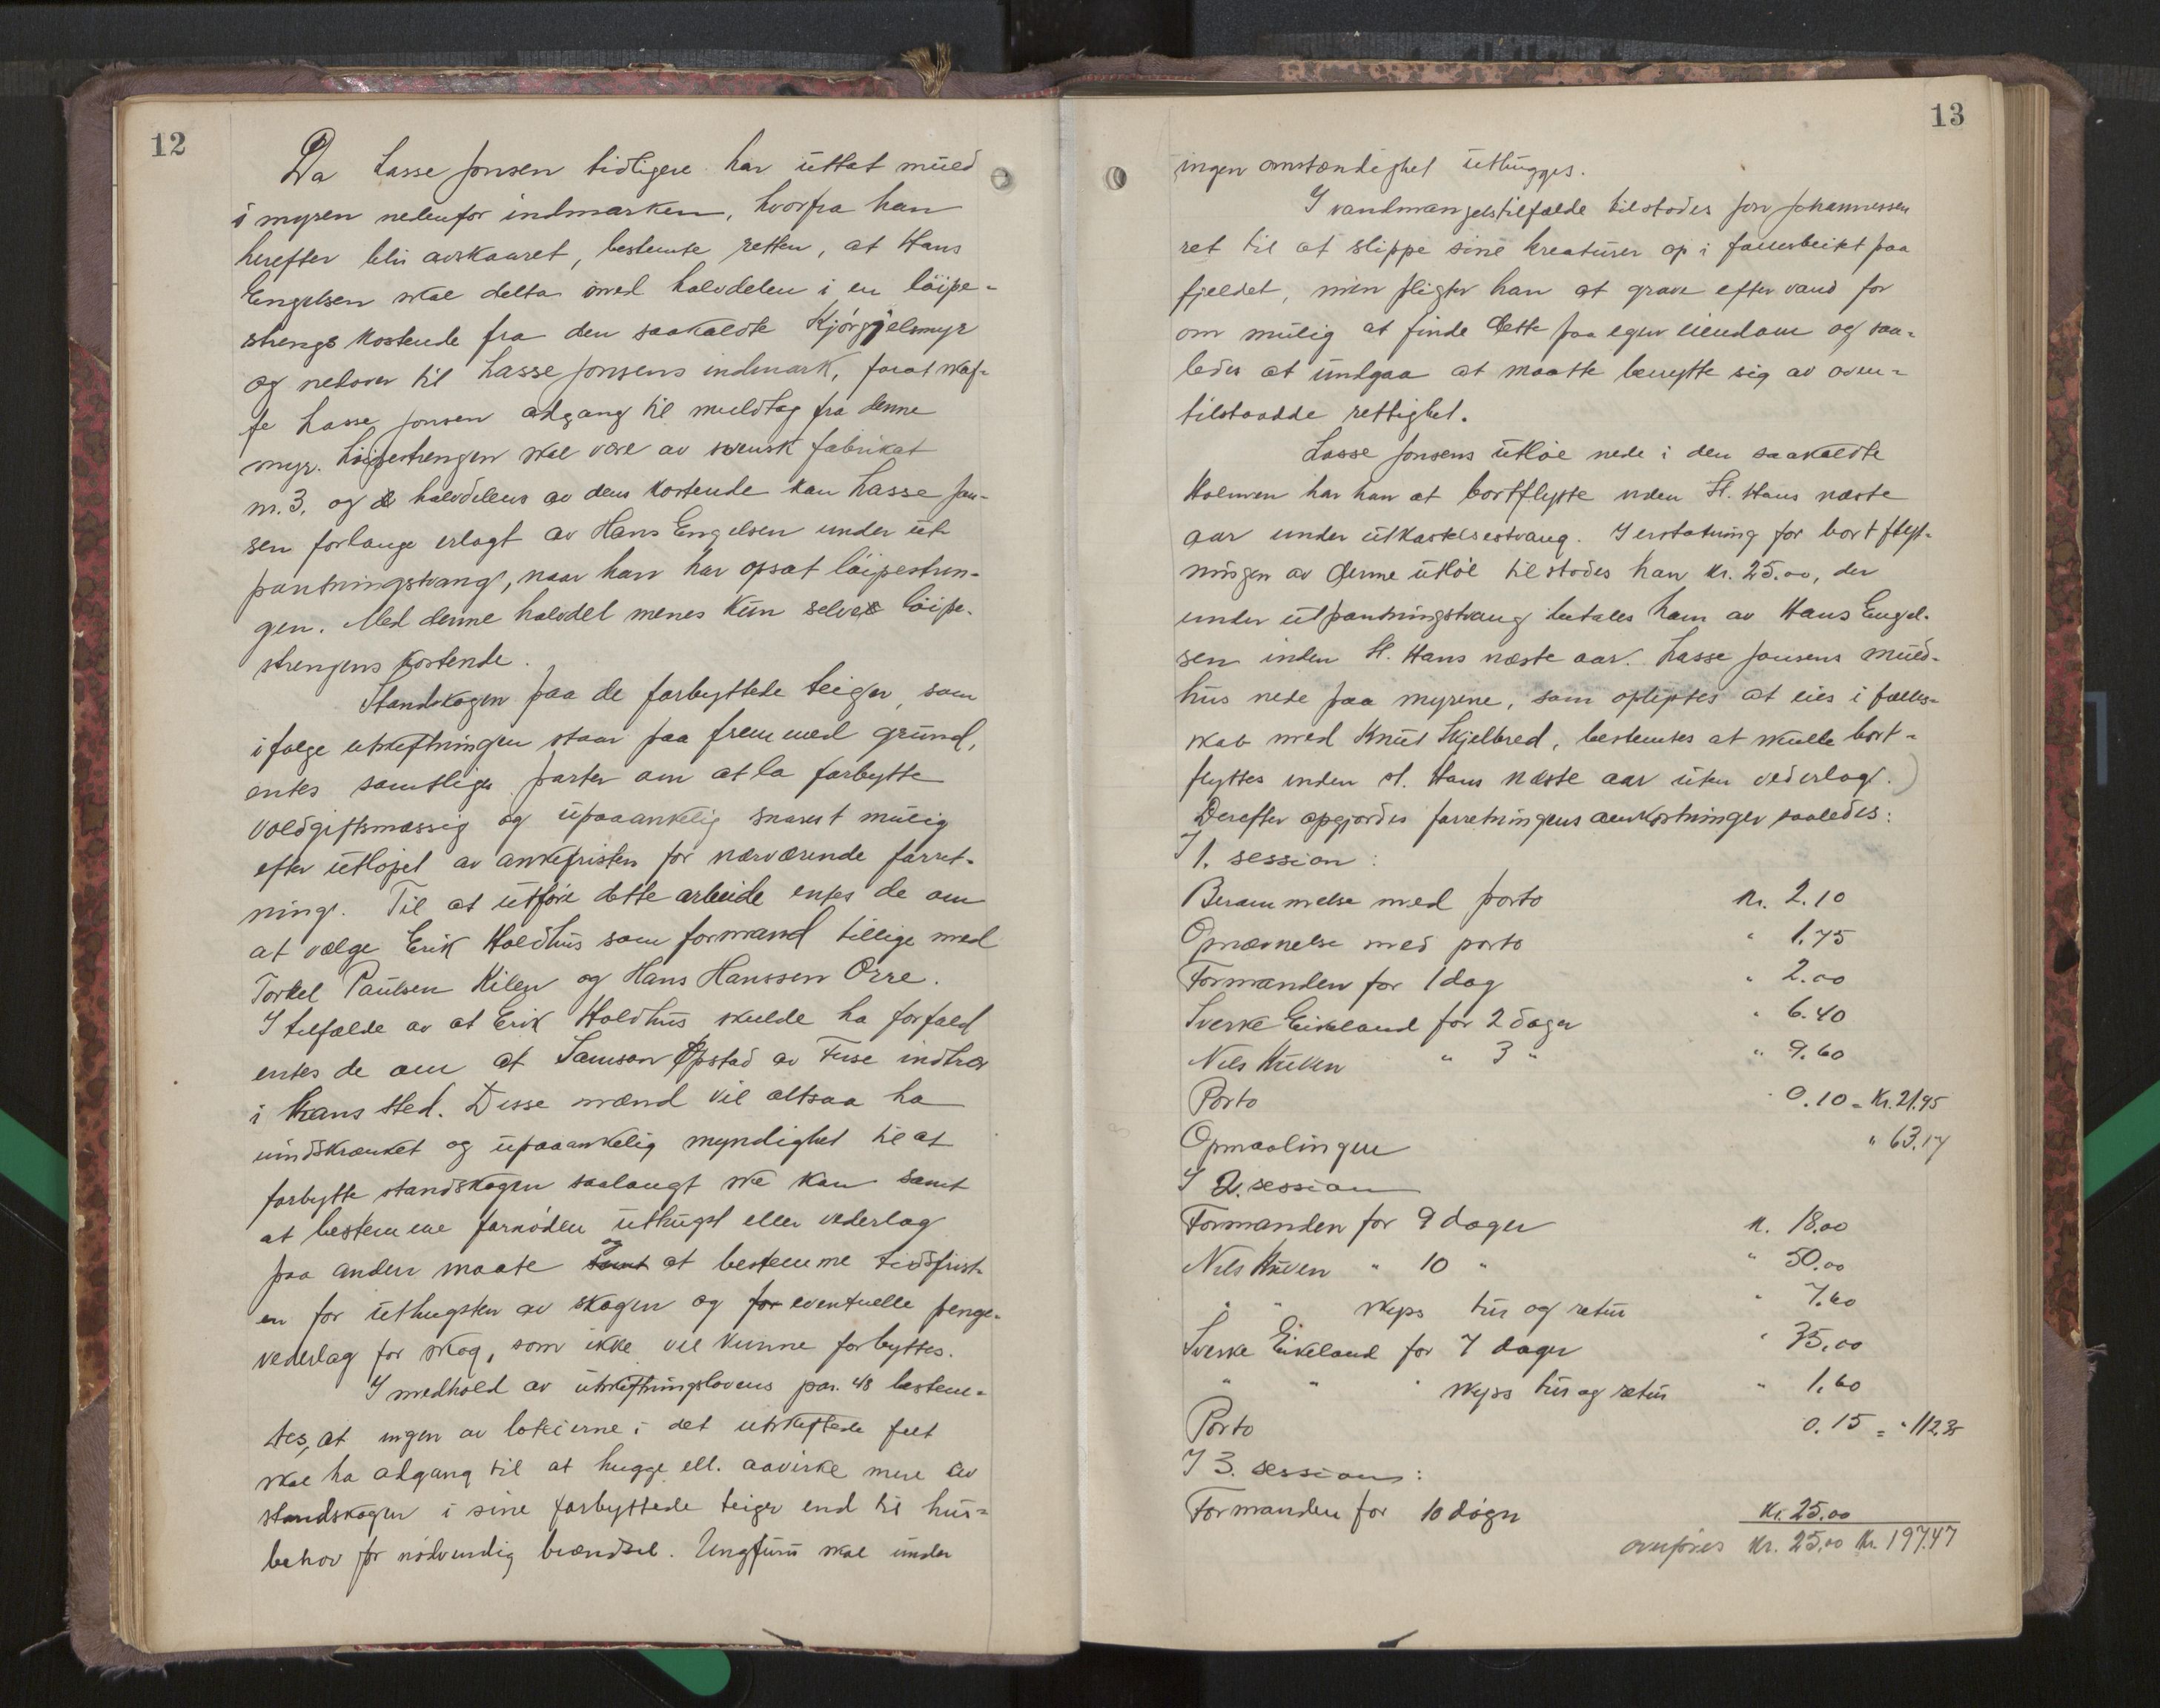 12
Da Lasse Jonsen tidligere har uttat muld
i myren nedenfor indmarken, hvorfra han
herefter blir avskaaret, bestemte retten, at Hans
Engelsen skal delta med halvdelen i en löipe-
strengs kostende fra den saakaldte Kjörgjelsmyr
og nedover til Lasse Jonsens indmark, forat skaf-
fe Lasse Jonsen adgang til muldtag fra denne
myr. Löipestrengen skal være av svensk fabrikat
nr. 3. og halvdelens av dens kostende kan Lasse Jon-
sen forlange erlagt av Hans Engelsen under ut-
pantningstvang, naar han har opsat löipestren-
gen. Med denne halvdel menes kun selve löipe-
strengens kostende.
Standskogen paa de forbyttede teiger, som
ifølge utskiftningen staar paa fremmed grund,
entes samtlige parter om at la forbytte
voldgiftsmæssig og upaaankelig snarest mulig
efter utlöpet av ankefristen for nærværende forret-
ning. Til at utföre dette arbeide entes de om
at vælge Erik Holdhus som formand tillige med
Torkel Paulsen Kilen og Hans Hanssen Orre.
I tilfælde av at Erik Holdhus skulde ha forfald
entes de om at Samson Opstad av Fuse indtrær
i hans sted. Disse mænd vil altsaa ha
uindskrænket og upaaankelig myndighet til at
forbytte standskogen saalangt ske kan samt
at bestemme fornöden uthugst eller vederlag
paa anden maate samt og at bestemme tidsfrist-
en for uthugsten av skogen og for eventuelle penge-
vederlag for skog, som ikke vil kunne forbyttes.
I medhold av utskiftningslovens par. 48 bestem-
tes, at ingen av loteierne i det utskiftede felt
skal ha adgang til at hugge ell. aavirke mere av
standskogen i sine forbyttede teiger end til hus-
behov for nödvendig brændsel. Ungfuru skal under
13
ingen omstændighet uthugges.
I vandmangelstilfælde tilstodes Jon Johannessen
ret til at slippe sine kreaturer op i fællesbeitet paa
fjeldet, men pligter han at grave efter vand for
om mulig at finde dette paa egen eiendom og saa-
ledes at undgaa at maatte benytte sig av oven-
tilstaadde rettighet.
Lasse Jonsens utlöe nede i den saakaldte
Holmen har han at bortflytte inden St. Hans næste
aar under utkastelsestvang. I erstatning for bortflyt-
ningen av denne utlöe tilstodes han kr. 25.00, der
under utpantningstvang betales ham av Hans Engel-
sen inden St. Hans næste aar. Lasse Jonsens muld-
hus nede paa myrene, som oplystes at eies i fælles-
skab med Knut Skjelbred, bestemtes at skulle bort-
flyttes inden St. Hans næste aar uten vederlag.
Derefter opgjordes forretningens omkostninger saaledes:
I 1. session:
Berammelse med porto kr. 2.10
Opnævnelse med porto " 1.75
Formanden for 1 dag " 2.00
Sverke Eikeland for 2 dager " 6.40
Nils " 3 " " 9.60
Porto " 0.10 = Kr. 21.95
Opmaalingen " 63.17
I 2. session
Formanden for 9 dager kr. 18.00
Nils " 10 " " 50.00
" " skyss tur og retur " 7.60
Sverke Eikeland for 7 dager " 35.00
" " " skyss tur og retur " 1.60
Porto 0.15 = " 112.35
I 3. session:
Formanden for 10 dögn Kr. 25.00
overföres Kr. 25.00 Kr. 197.47